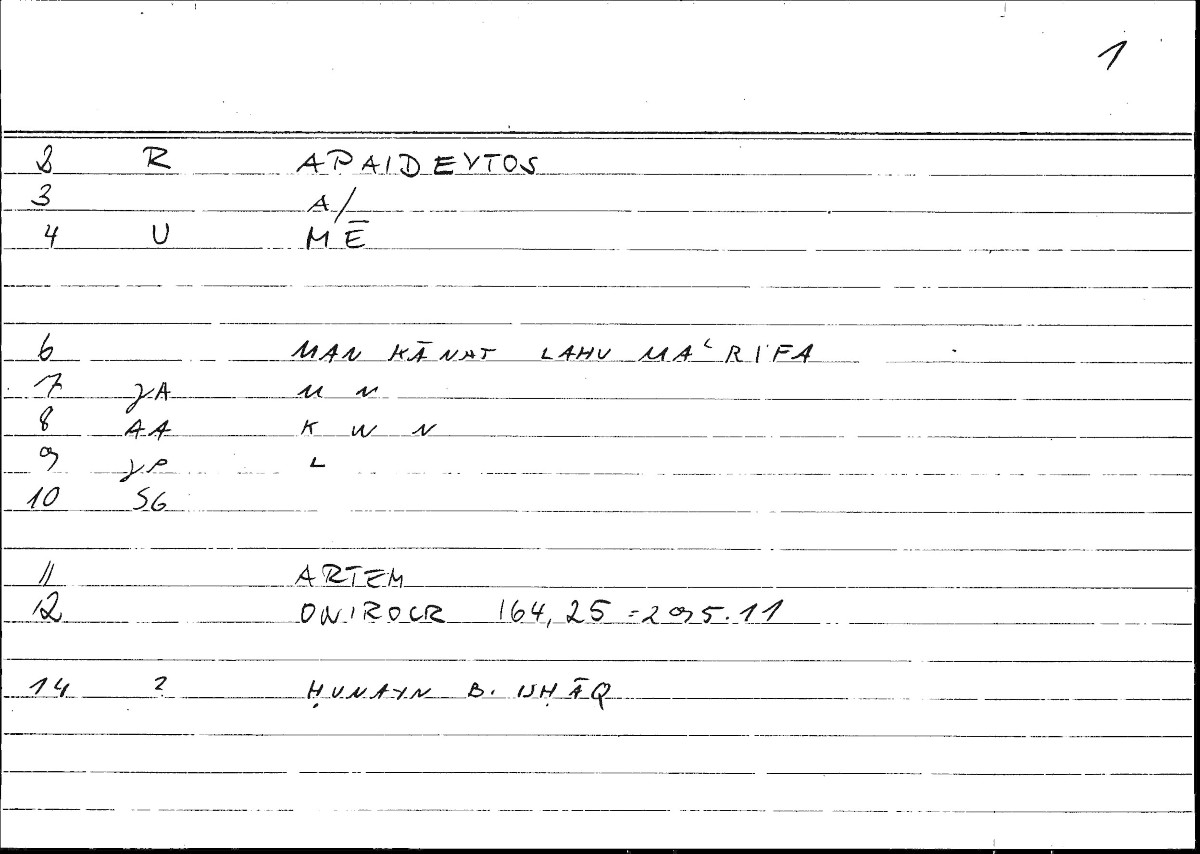 1
2 R APAIDEYTOS
3 A/
4 U MĒ
6 MAN KĀNAT LAHU MAʿRIFA
7 γA M N
8 AA K W N
9 γP L
10 SG
11 ARTEM
12 ONIROCR 164,25 = 295.11
14 2 ḤUNAYN B. ISḤĀQ